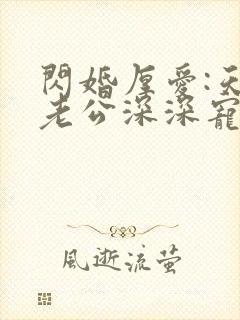 閃婚厚愛:天
老公深深寵
風逝流萤